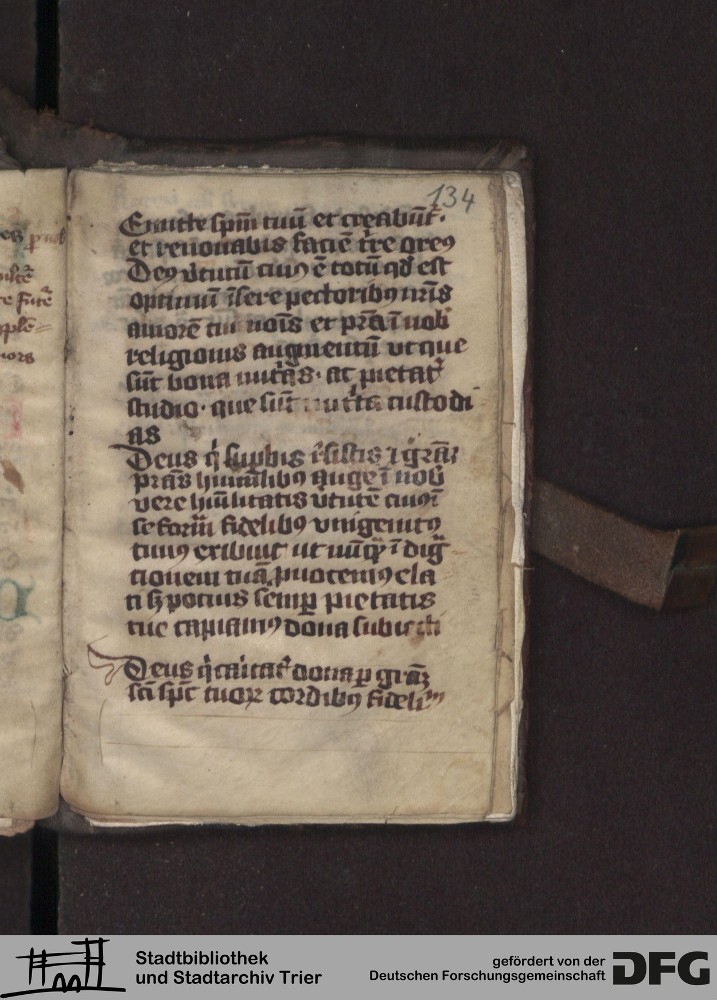 134
Emitte spm tuu et creabut̃.
et renouabis facie tre oreꝫ
Deꝰ v̾tutu cuiꝰ ẽ totũ qd̾ est
optimũ ĩsere pectoribꝰ nr̃is
amorẽ tui noĩs et pr̃a ĩ nob̾
religionis augmentũ vt que
sũt bona nut̾as. ac pietat̾
studio. que sũt nut̾ta custodi
as
Deus q̾ suꝑbis r̾sistis ⁊ gr̃aꝫ
pr̃as humilibꝰ auge ĩ nob̾
vere hũilitatis v̾tutẽ cuiꝰ ĩ
se formã fidelibꝰ vnigenitꝰ
tuus exibuit ut nũq̃ ĩ dig̃
tionem tuã ꝓuocemꝰ ela
ti sꝫ potius semꝑ pietatis
tue capiamꝰ dona subiecti
Deus q̾ caritat̾ dona ꝑ gr̃aꝫ
sc̃i sp̃c tuoꝝ cordibꝰ fideliũ
Stadtbibliothek
und Stadtarchiv Trier
gefördert von der
Deutschen Forschungsgemeinschaft
DFG